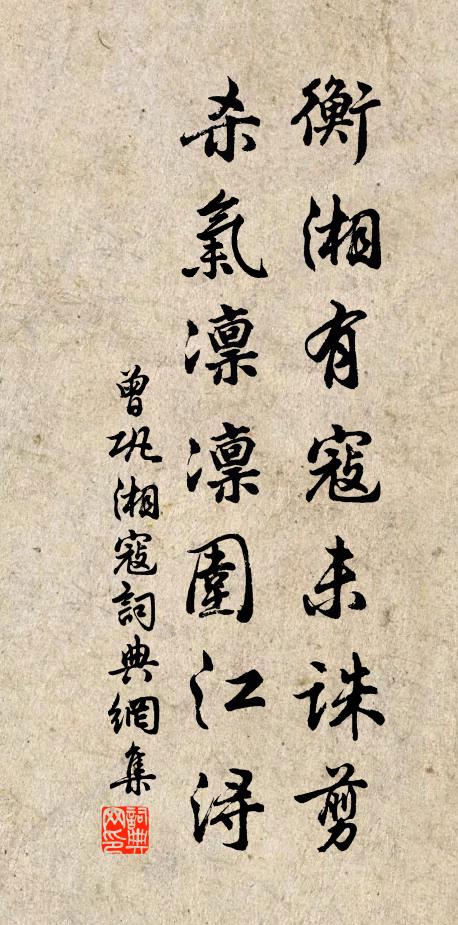 衡湘有寇未誅剪
殺氣凛凛圍江潯
曾巩湘寇詞典網集
詞典网印